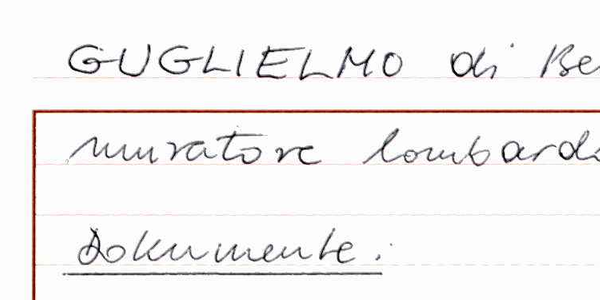 GUGLIELMO di Be
muratore lombardo
Dokumente: